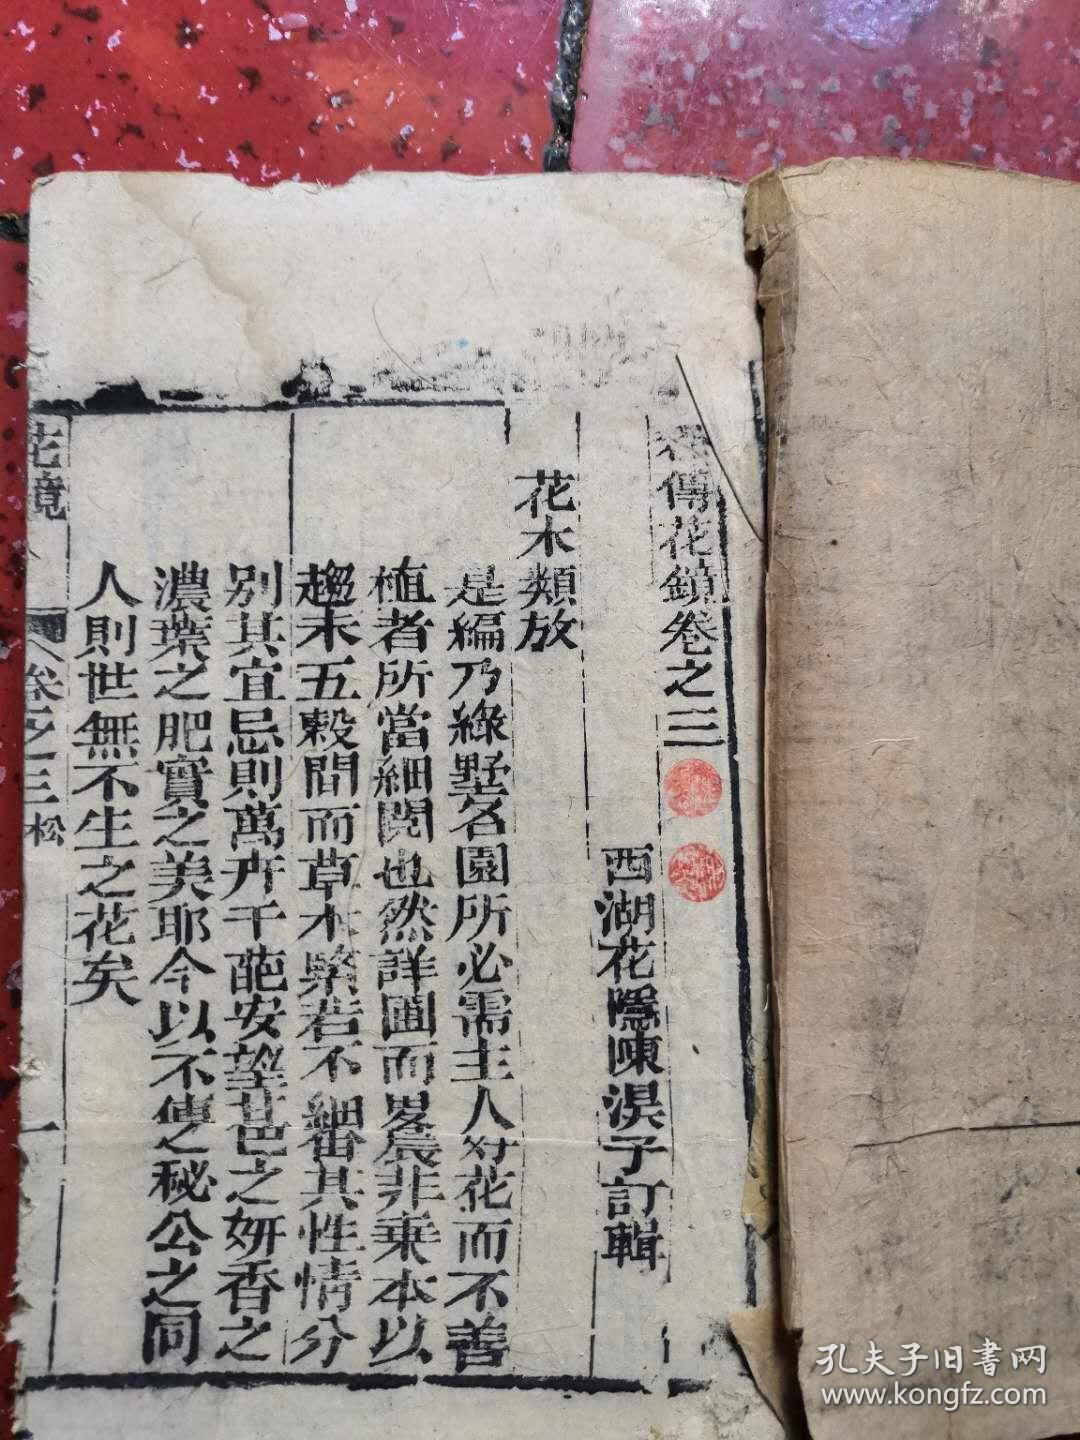 秘傳花鏡卷之三
西湖花隱陳淏子訂輯
花木類放
是編乃綠墅名園所必需主人对花而不善
植者所當細閱也然詳圃而畧農非乘本以
趨末五穀間而草木繁若不細審其性情分
别其宜忌則萬卉千葩安望其色之妍香之
濃葉之肥實之美耶今以不傳之秘公之同
人則世無不生之花矣
花鏡
卷之三 松
一
孔夫子旧書网
www.kongfz.com